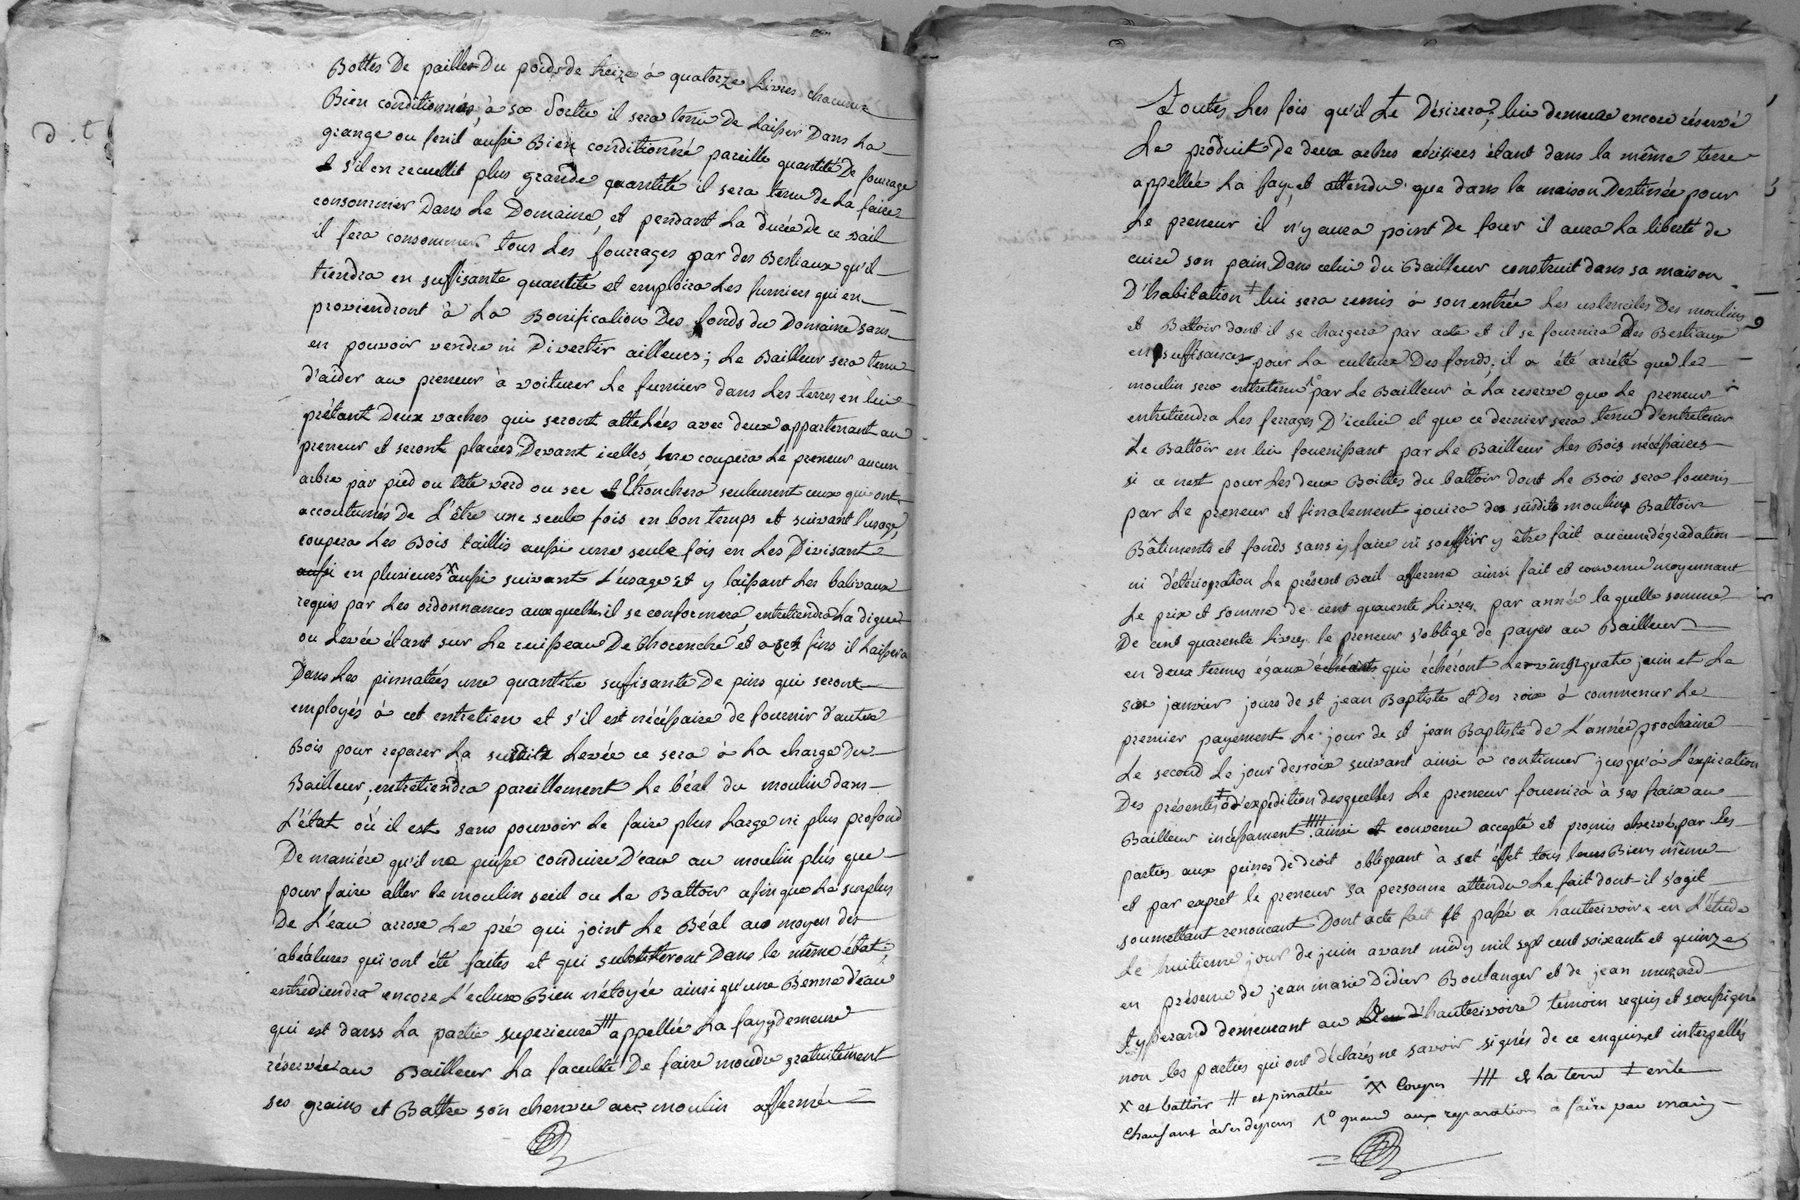 d. t.
Bottes De pailles Du poids de treize à quatorze Livres chacune
Bien conditionnées, à sa Sortie il sera tenu De Laisser Dans La
grange ou fenil aussi Bien conditionné pareille quantité De fourrage
s'il en recueillit plus grande quantité il sera tenu de La faire
consommer Dans Le Domaine, et pendant La durée De ce bail
il fera consommer tous Les fourrages par des Bestiaux qu'il
tiendra en suffisante quantité et emploira Les fumiers qui en
proviendront à La Bonification Des fonds du Domaine sans
en pouvoir vendre ni Divertir ailleurs; Le Bailleur sera tenu
d'aider au preneur à voiturer Le fumier dans Les terres en lui
prétant Deux vaches qui seront attelées avec deux appartenant au
preneur et seront placées Devant icelles, ne coupera Le preneur aucun
arbre par pied ou tête verd ou sec et Etronchera seulement ceux qui ont
accoutumés De L'être une seule fois en bon temps et suivant l'usage,
coupera Les Bois taillis aussi une seule fois en Les Divisant
aussi en plusieurs x aussi suivant L'usage et y laissant Les balivaux
requis par Les ordonnances auxquelles il se conformera, entretiendra La digue
ou Levée étant sur Le ruisseau De Chorenche et a cet fins il Laissera
Dans Les pinnatées une quantité suffisante De pins qui seront
employés à cet entretien et s'il est nécéssaire de fournir d'autre
Bois pour reparer La susdite Levée ce sera à La charge Du
Bailleur; entretiendra pareillement Le béal du moulin dans
L'état où il est sans pouvoir Le faire plus Large ni plus profond
De maniére qu'il ne puisse conduire D'eau au moulin plus que
pour faire aller Le moulin seul ou Le Battoir afin que Le surplus
De L'eau arrose Le pré qui joint Le Béal au moyen des
abéalures qui ont été faites et qui subsisteront Dans le même état;
entrediendra encore L'ecluse Bien nétoyée ainsi qu'une Benne d'eau
qui est dans La partie superieure ttt appellée La fay; demeure
réservée au Bailleur La faculté De faire moudre gratuitement
ses grains et Battre son chenvre aux moulin affermés
Toutes Les fois qu'il Le Désirera, lui demeure encore réservé
Le produit De deux arbres étant dans la même terre
appellée La fay, et attendu que dans la maison Destinée pour
Le preneur il n'y aura point De four il aura La liberté de
cuire son pain Dans celui du Bailleur construit dans sa maison
D'habitation ‡ lui sera remis à son entrée Les ustenciles Des moulins
et Battoir dont il se chargera par acte et il se fournira Des Bestiaux
en suffisance pour La culture Des fonds; il a été arrêté que Les
moulin sera entretenu 1o par Le Bailleur à La reserve que Le preneur
entretiendra Les ferrages D'icelui et que ce dernier sera tenu d'entretenir
Le Battoir en lui fournissant par Le Bailleur Les Bois nécéssaires
si ce n'est pour Les deux Boittes du battoir dont Le Bois sera fournis
par Le preneur et finalement jouira des susdits moulins Battoir
Bâtiments et fonds sans y faire ni souffrir y être fait aucune dégradation
ni déterioration Le présent Bail afferme ainsi fait et convenu moyennant
Le prix et somme de cent quarente Livres par année laquelle somme
De cent quarente livres le preneur s'oblige de payer au Bailleur
en deux termes égaux échéants qui écheront Le vingt quatre juin et Le
six janvier jours de st jean Baptiste et Des rois à commencer Le
premier payement Le jour de st jean Baptiste de L'année prochaine
Le second Le jour des rois suivant ainsi a continuer jusqu'à L'expiration
Des présentes ‡ d'expedition desquelles Le preneur fournira à ses fraix au
Bailleur incéssament tttt ainsi et convenu accepté et promis observé par les
parties aux peines de droit obligeant à cet éffet tous leurs Biens même
et par expret le preneur sa personne attendu Le fait dont il s'agit
soumettant renoncant Dont acte fait et passé a hauterivoire en L'étude
Le huitieme jour de juin avant midy mil sept cent soixante et quinze
en présence de jean marie Didier Boulanger et de jean muzard
tysserand demeurant au Lieu d'hauterivoire temoin requis et soussignés
non les parties qui ont déclarés ne savoir signés de ce enquis et interpellés
x et battoir # et pinattée x coupes ttt et La terre ‡ en le
chaufant à ses depens 1o quand aux reparations à faire par main